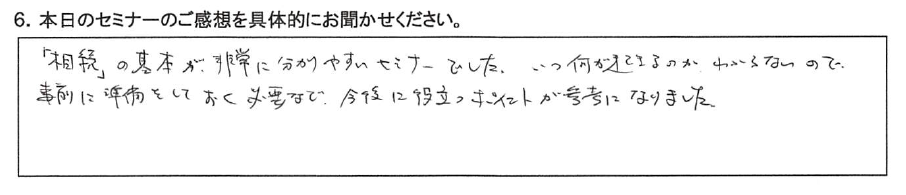 6. 本日のセミナーのご感想を具体的にお聞かせください。
「相続」の基本が非常に分かりやすいセミナーでした。いつ何が起きるのかわからないので、
事前に準備をしておく必要など、今後に役立つポイントが参考になりました。